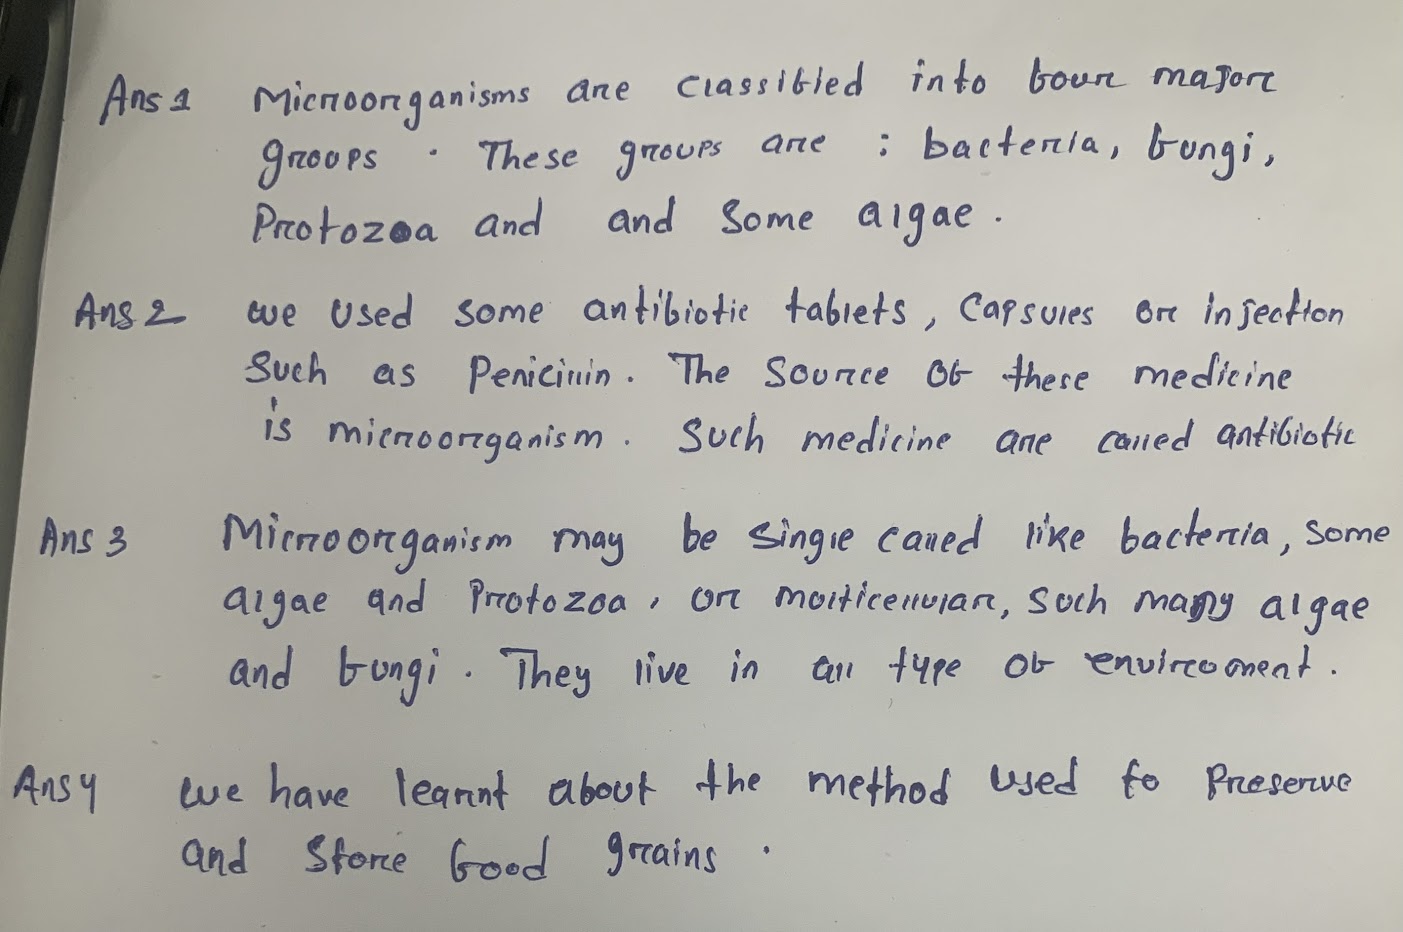 Ans 1 Microorganisms are classified into four major
groops . These groups are : bacteria, fungi,
Protozoa and and some algae .
Ans 2 we used some antibiotic tablets , Capsules or injection
Such as Penicillin . The source of these medicine
is microorganism . Such medicine are called antibiotic
Ans 3 Microorganism may be single called like bacteria, some
algae and Protozoa , or molticellular, soch many algae
and fungi . They live in all type of enviroment .
Ans 4 we have learnt about the method used to Preserve
and store food grains .